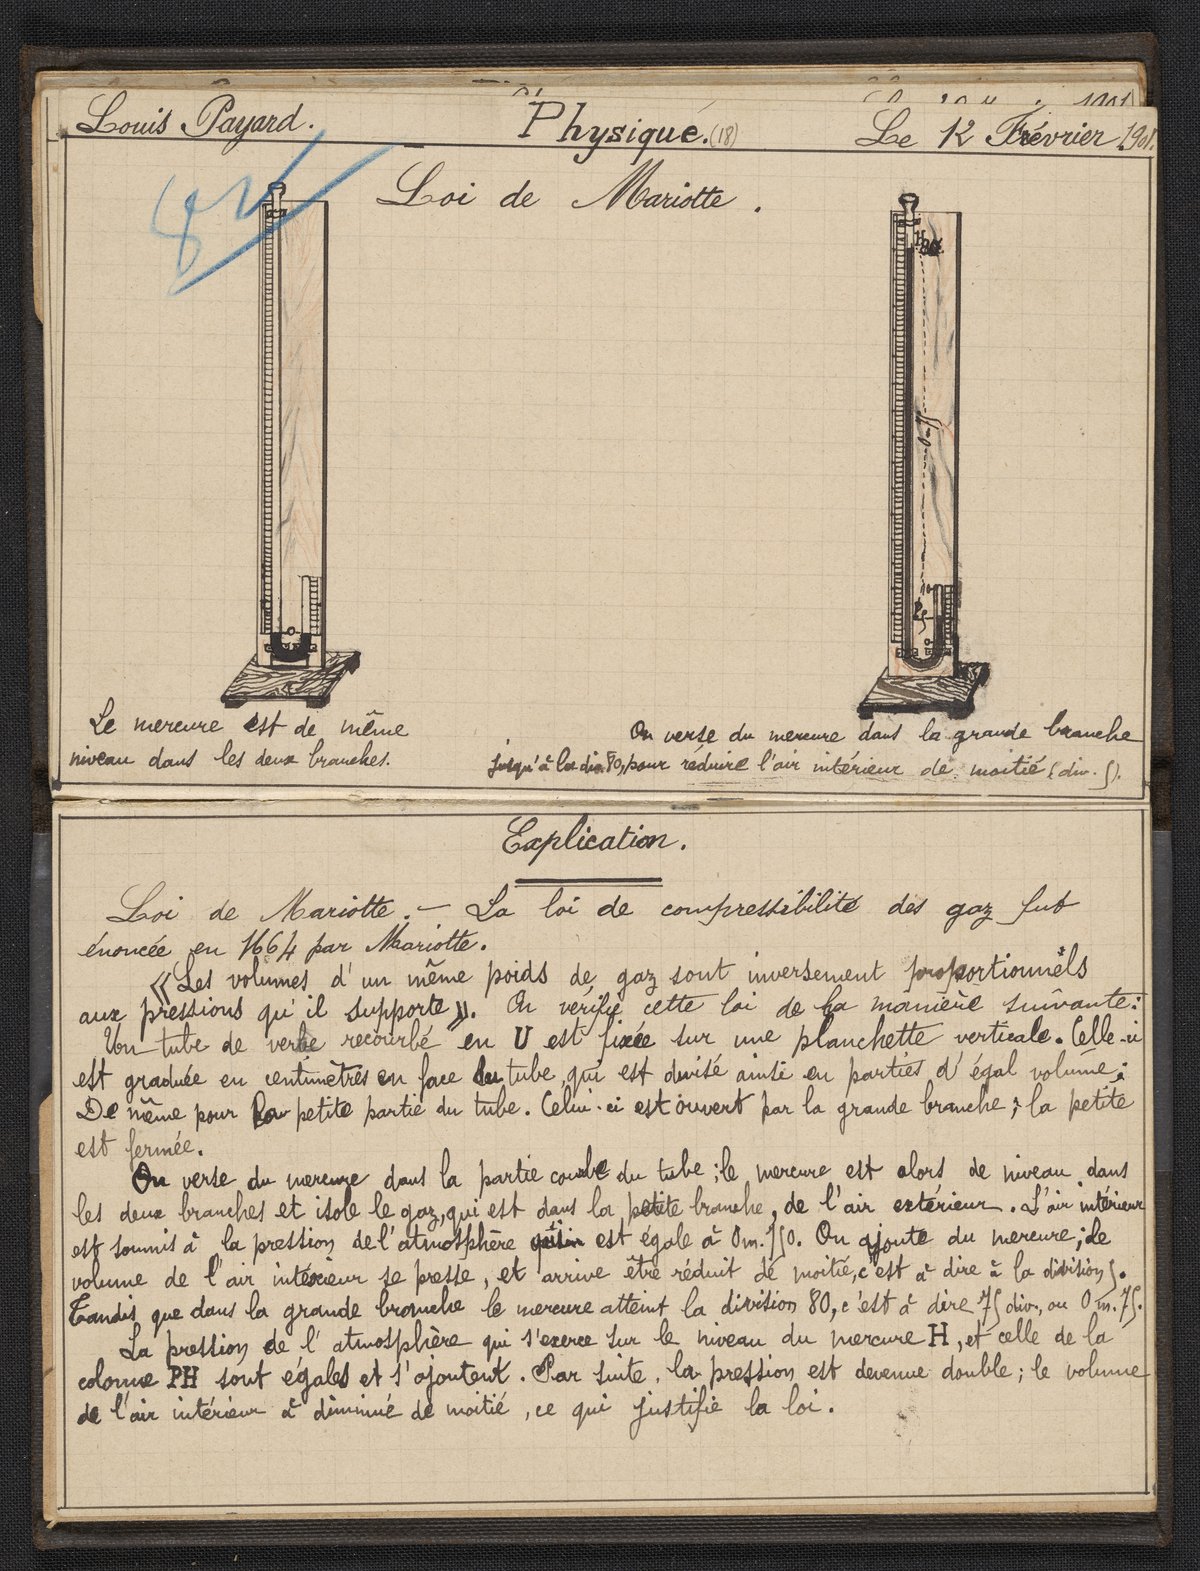 Louis Payard.
Physique. (18)
Le 12 Février 1901.
Loi de Mariotte.
Le mercure est de même
niveau dans les deux branches.
On verse du mercure dans la grande branche
jusqu'à la div. 80, pour réduire l'air intérieur de moitié (div. 5).
Explication.
Loi de Mariotte. — La loi de compressibilité des gaz fut
énoncée en 1664 par Mariotte.
« Les volumes d'un même poids de gaz sont inversement proportionnels
aux pressions qu'il supporte ». On vérifie cette loi de la manière suivante :
Un tube de verre recourbé en U est fixée sur une planchette verticale. Celle-ci
est graduée en centimètres en face du tube, qui est divisé ainsi en parties d'égal volume ;
De même pour la petite partie du tube. Celui-ci est ouvert par la grande branche ; la petite
est fermée.
On verse du mercure dans la partie courbe du tube ; le mercure est alors de niveau dans
les deux branches et isole le gaz, qui est dans la petite branche, de l'air extérieur. L'air intérieur
est soumis à la pression de l'atmosphère est égale à 0m.750. On ajoute du mercure ; le
volume de l'air intérieur se presse, et arrive être réduit de moitié, c'est à dire à la division 5.
Tandis que dans la grande branche le mercure atteint la division 80, c'est à dire 75 div., ou 0m.75.
La pression de l'atmosphère qui s'exerce sur le niveau du mercure H, et celle de la
colonne PH sont égales et s'ajoutent. Par suite, la pression est devenue double ; le volume
de l'air intérieur à diminué de moitié, ce qui justifie la loi.